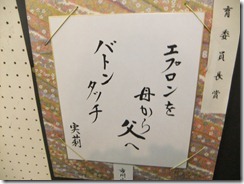 エプロンを
母から父へ
バトンタッチ
実莉
育委員長賞